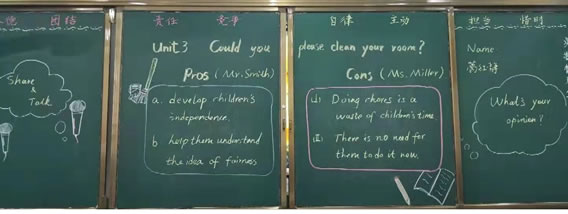 团结
责任 竞争
自律 主动
担当 惜时
Share
&
Talk
Unit 3 Could you please clean your room?
Pros (Mr. Smith)
a. develop children's
independence.
b help them understand
the idea of fairness
Cons (Ms. Miller)
Doing chores is a
waste of children's time.
There is no need for
them to do it now.
Name:
What's your
opinion?